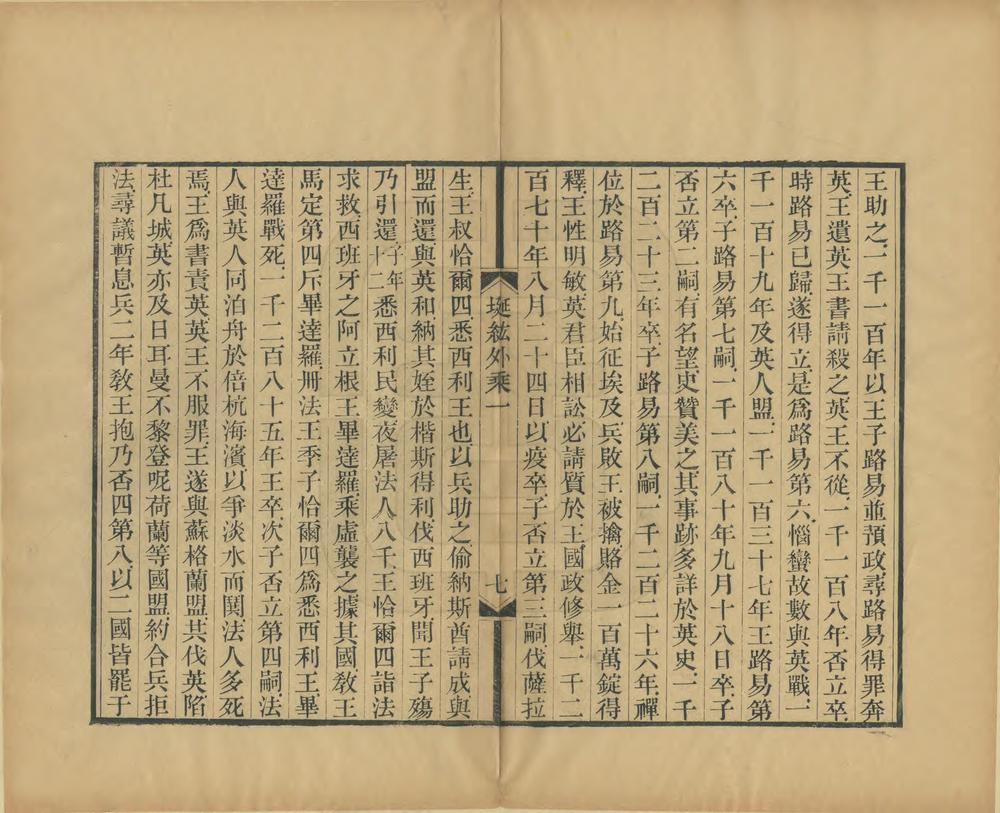 王助之一千一百年以王子路易並預政尋路易得罪奔
英王遺英王書請殺之英王不從一千一百八年否立卒
時路易已歸遂得立是爲路易第六惱蠻故數與英戰一
千一百十九年及英人盟一千一百三十七年王路易第
六卒子路易第七嗣一千一百八十年九月十八日卒子
否立第二嗣有名望史贊美之其事跡多詳於英史一千
二百二十三年卒子路易第八嗣一千二百二十六年禪
位於路易第九始征埃及兵敗王被擒賂金一百萬錠得
釋王性明敏英君臣相訟必請質於王國政修舉一千二
百七十年八月二十四日以疫卒子否立第三嗣伐薩拉
埏紘外乘一
七
生王叔恰爾四悉西利王也以兵助之偷納斯酋請成與
盟而還與英和納其姪於楷斯得利伐西班牙聞王子殤
乃引還子年十二悉西利民變夜屠法人八千王恰爾四詣法
求救西班牙之阿立根王畢達羅乘虛襲之據其國敎王
馬定第四斥畢達羅冊法王季子恰爾四爲悉西利王畢
達羅戰死一千二百八十五年王卒次子否立第四嗣法
人與英人同泊舟於倍杭海濱以爭淡水而鬨法人多死
焉王爲書責英英王不服罪王遂與蘇格蘭盟其伐英陷
杜凡城英亦及日耳曼不黎登呢荷蘭等國盟約合兵拒
法尋議暫息兵二年敎王抱乃否四第八以二國皆罷于